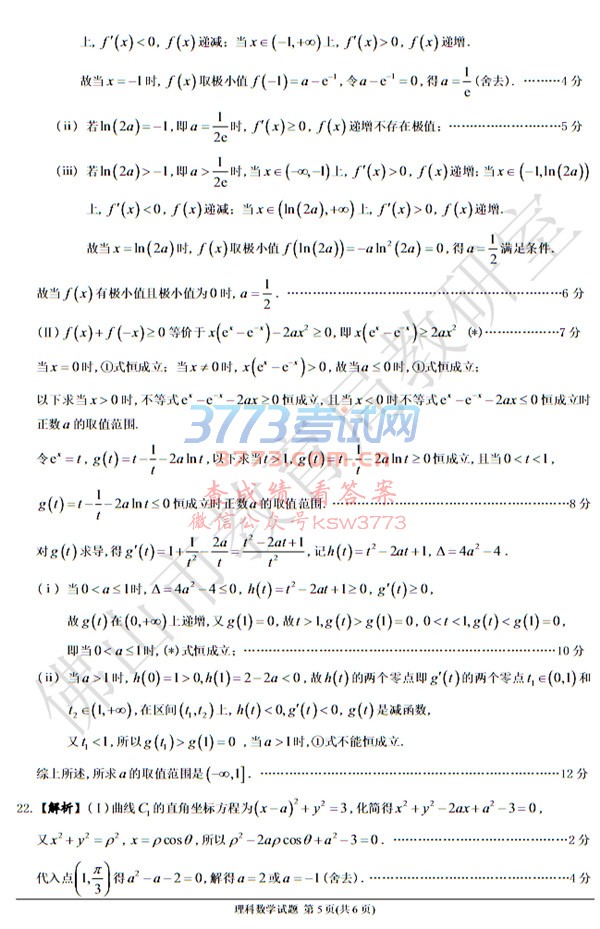 上, f′(x)<0, f(x)递减; 当x∈(−1,+∞)上, f′(x)>0, f(x)递增.
故当x=−1时, f(x)取极小值f(−1)=a−e⁻¹,令a−e⁻¹=0,得a=1/e(舍去). ………4分
(ii) 若ln(2a)=−1,即a=1/2e时, f′(x)≥0, f(x)递增不存在极值; ………………………5分
(iii) 若ln(2a)>−1,即a>1/2e时,当x∈(−∞,−1)上, f′(x)>0, f(x)递增; 当x∈(−1,ln(2a))
上, f′(x)<0, f(x)递减; 当x∈(ln(2a),+∞)上, f′(x)>0, f(x)递增.
故当x=ln(2a)时, f(x)取极小值f(ln(2a))=−aln²(2a)=0,得a=1/2满足条件.
故当f(x)有极小值且极小值为0时, a=1/2. ………………………………………………6分
(Ⅱ) f(x)+f(−x)≥0等价于x(eˣ−e⁻ˣ)−2ax²≥0,即x(eˣ−e⁻ˣ)≥2ax² (*)………………7分
当x=0时,①式恒成立; 当x≠0时, x(eˣ−e⁻ˣ)>0,故当a≤0时,①式恒成立;
以下求当x>0时,不等式eˣ−e⁻ˣ−2ax≥0恒成立, 且当x<0时不等式eˣ−e⁻ˣ−2ax≤0恒成立时
正数a的取值范围.
令eˣ=t, g(t)=t−1/t−2alnt,以下求当t>1, g(t)=t−1/t−2alnt≥0恒成立,且当0<t<1,
g(t)=t−1/t−2alnt≤0恒成立时正数a的取值范围. ………………………………………8分
对g(t)求导,得g′(t)=1+1/t²−2a/t=(t²−2at+1)/t², 记h(t)=t²−2at+1, Δ=4a²−4.
(i) 当0<a≤1时, Δ=4a²−4≤0, h(t)=t²−2at+1≥0, g′(t)≥0,
故g(t)在(0,+∞)上递增,又g(1)=0, 故t>1,g(t)>g(1)=0, 0<t<1,g(t)<g(1)=0,
即当0<a≤1时,(*)式恒成立; ………………………………………………………10分
(ii) 当a>1时, h(0)=1>0,h(1)=2−2a<0, 故h(t)的两个零点即g′(t)的两个零点t₁∈(0,1)和
t₂∈(1,+∞),在区间(t₁,t₂)上, h(t)<0,g′(t)<0, g(t)是减函数,
又t₁<1,所以g(t₁)>g(1)=0 ,当a>1时,①式不能恒成立.
综上所述,所求a的取值范围是(−∞,1]. ………………………………………………12分
22.【解析】(Ⅰ)曲线C₁的直角坐标方程为(x−a)²+y²=3,化简得x²+y²−2ax+a²−3=0,
又x²+y²=ρ², x=ρcosθ,所以ρ²−2aρcosθ+a²−3=0. ………………………………2分
代入点(1,π/3)得a²−a−2=0,解得a=2或a=−1(舍去). ………………………………4分
理科数学试题 第5页(共6页)
3773考试网
3773.com.cn
查成绩 看答案
微信公众号ksw3773
佛山市教育局教研室